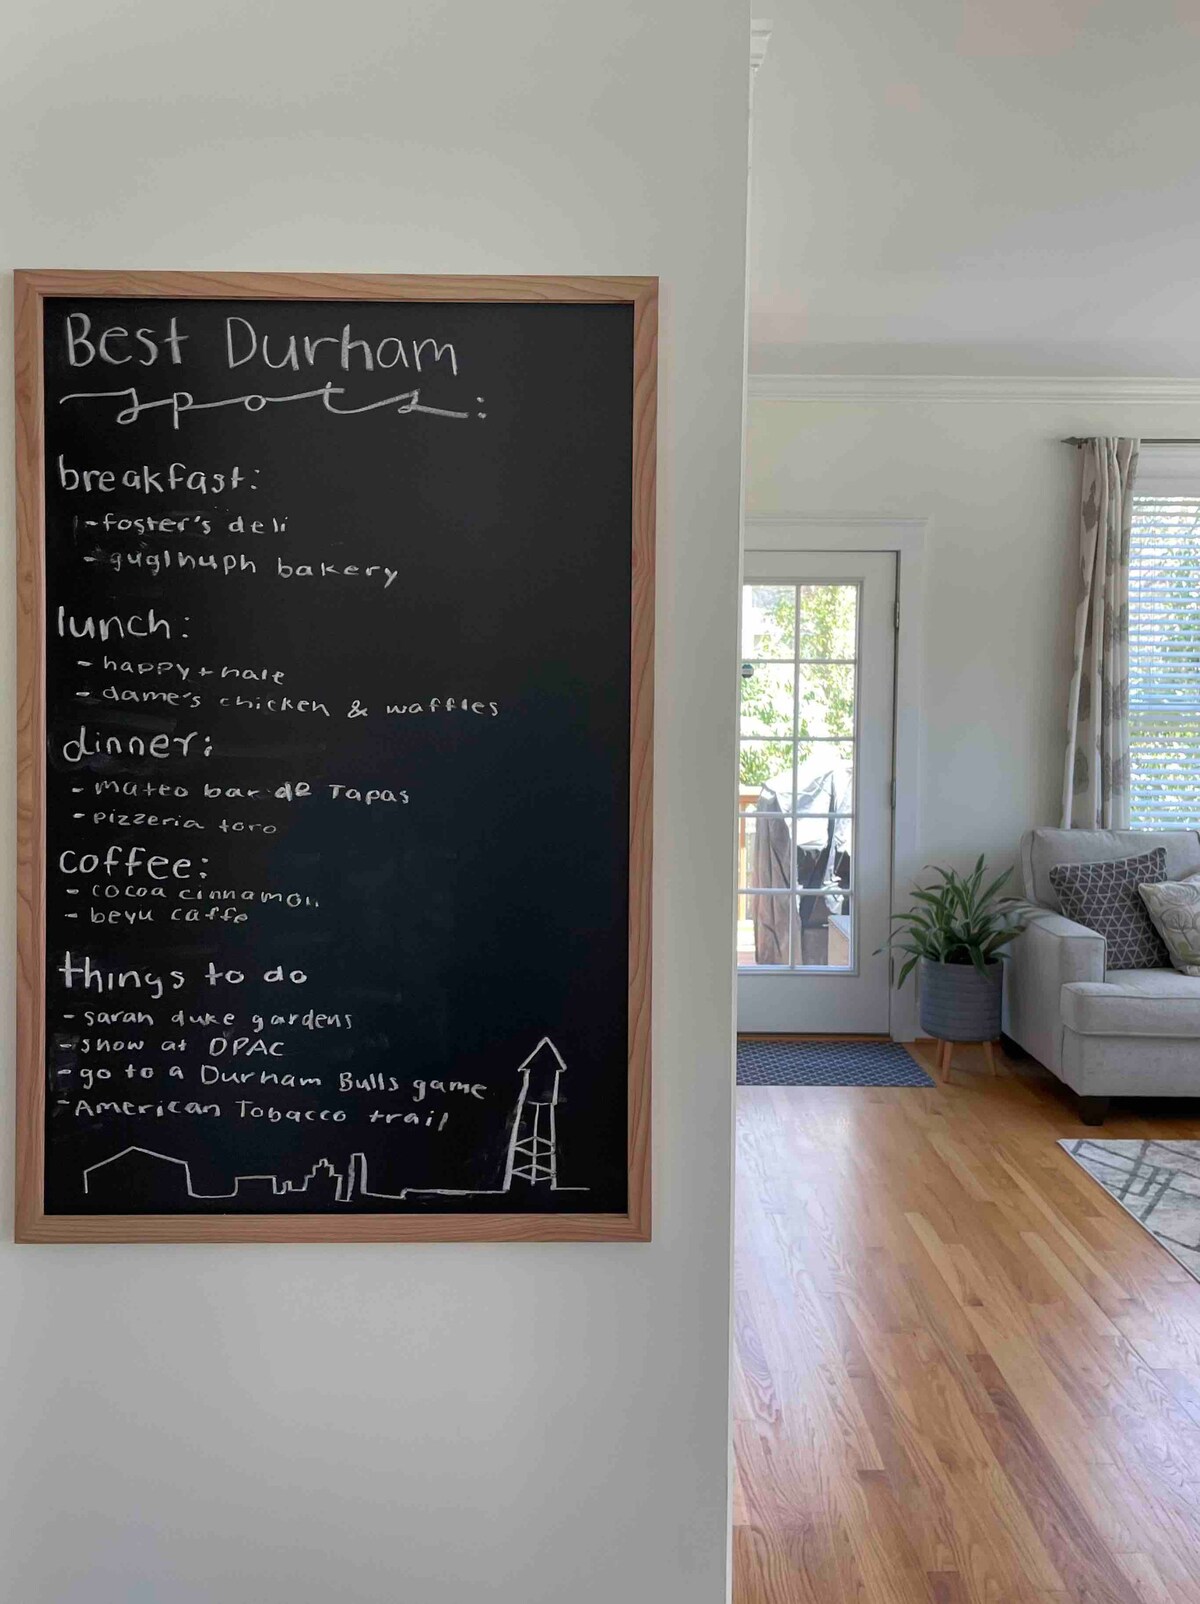 Best Durham
spots:
breakfast:
- foster's deli
- guglhuph bakery
lunch:
- happy + hale
- dame's chicken & waffles
dinner:
- mateo bar de Tapas
- pizzeria toro
coffee:
- cocoa cinnamon
- beyu caffe
things to do
- sarah duke gardens
- show at DPAC
- go to a Durham Bulls game
- American Tobacco trail